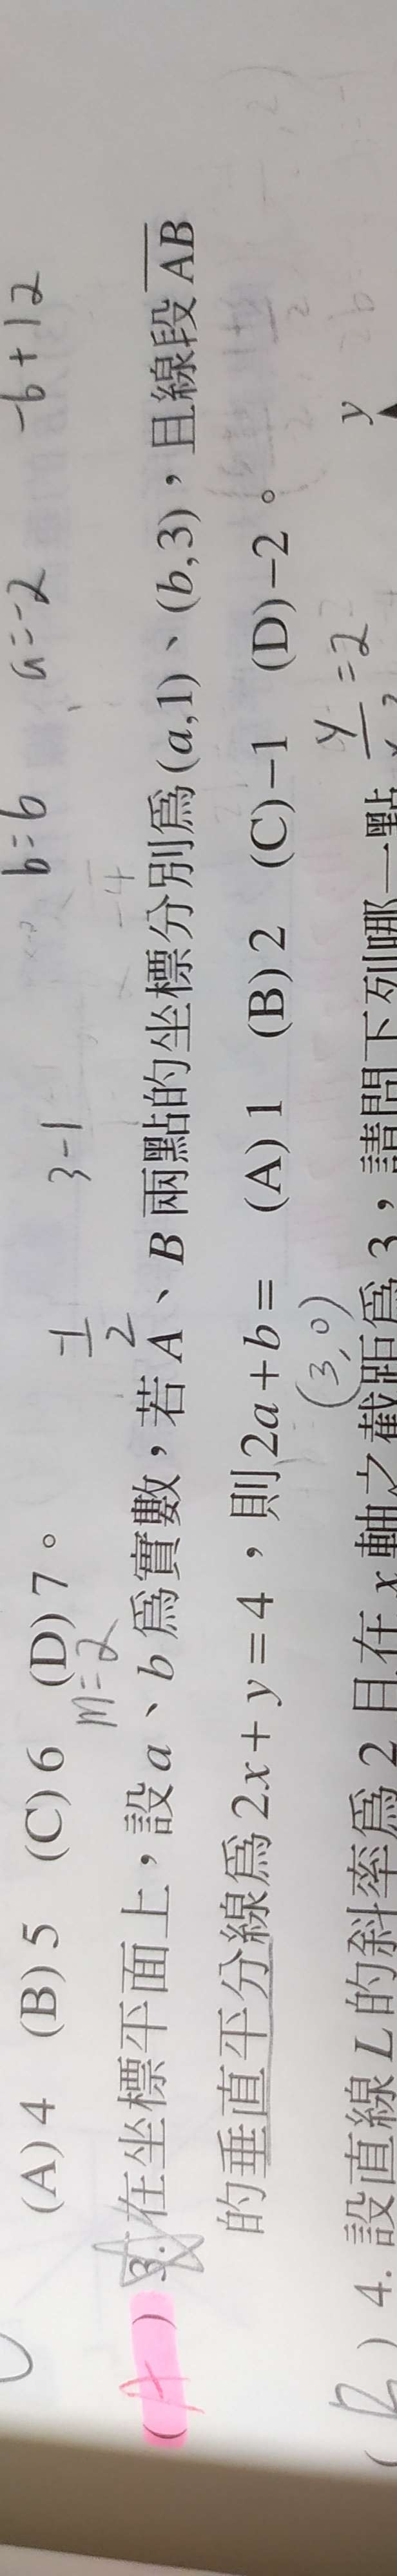 b=6 a=-2 -b+12
(A) 4 (B) 5 (C) 6 (D) 7。
m=2 -1/2 3-1
(A) 3. 在坐標平面上，設 a、b 為實數，若 A、B 兩點的坐標分別為 (a,1)、(b,3)，且線段 AB
的垂直平分線為 2x+y=4，則 2a+b= (A) 1 (B) 2 (C) -1 (D) -2。
(3,0) y =2 y
) 4. 設直線 L 的斜率為 2 且在 x 軸之截距為 3，請問下列哪一點